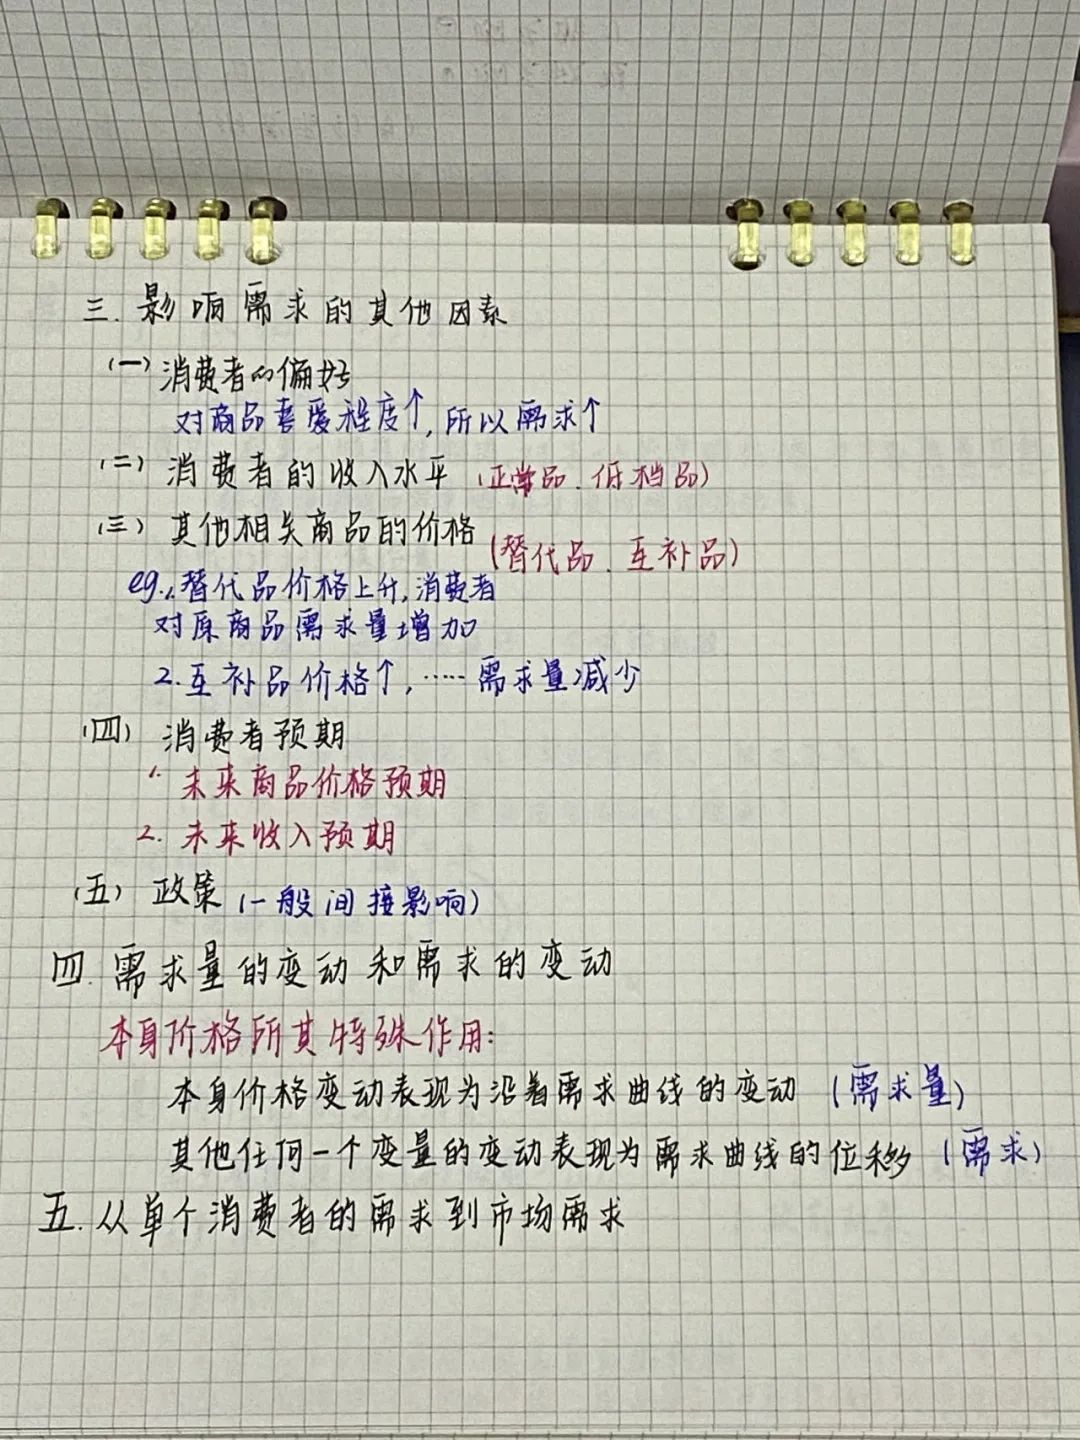 三.影响需求的其他因素
(一)消费者的偏好
对商品喜爱程度↑,所以需求↑
(二)消费者的收入水平(正常品.低档品)
(三)其他相关商品的价格(替代品.互补品)
eg.1.替代品价格上升,消费者
对原商品需求量增加
2.互补品价格↑,……需求量减少
(四)消费者预期
1.未来商品价格预期
2.未来收入预期
(五)政策(一般间接影响)
四.需求量的变动和需求的变动
本身价格所其特殊作用:
本身价格变动表现为沿着需求曲线的变动(需求量)
其他任何一个变量的变动表现为需求曲线的位移(需求)
五.从单个消费者的需求到市场需求